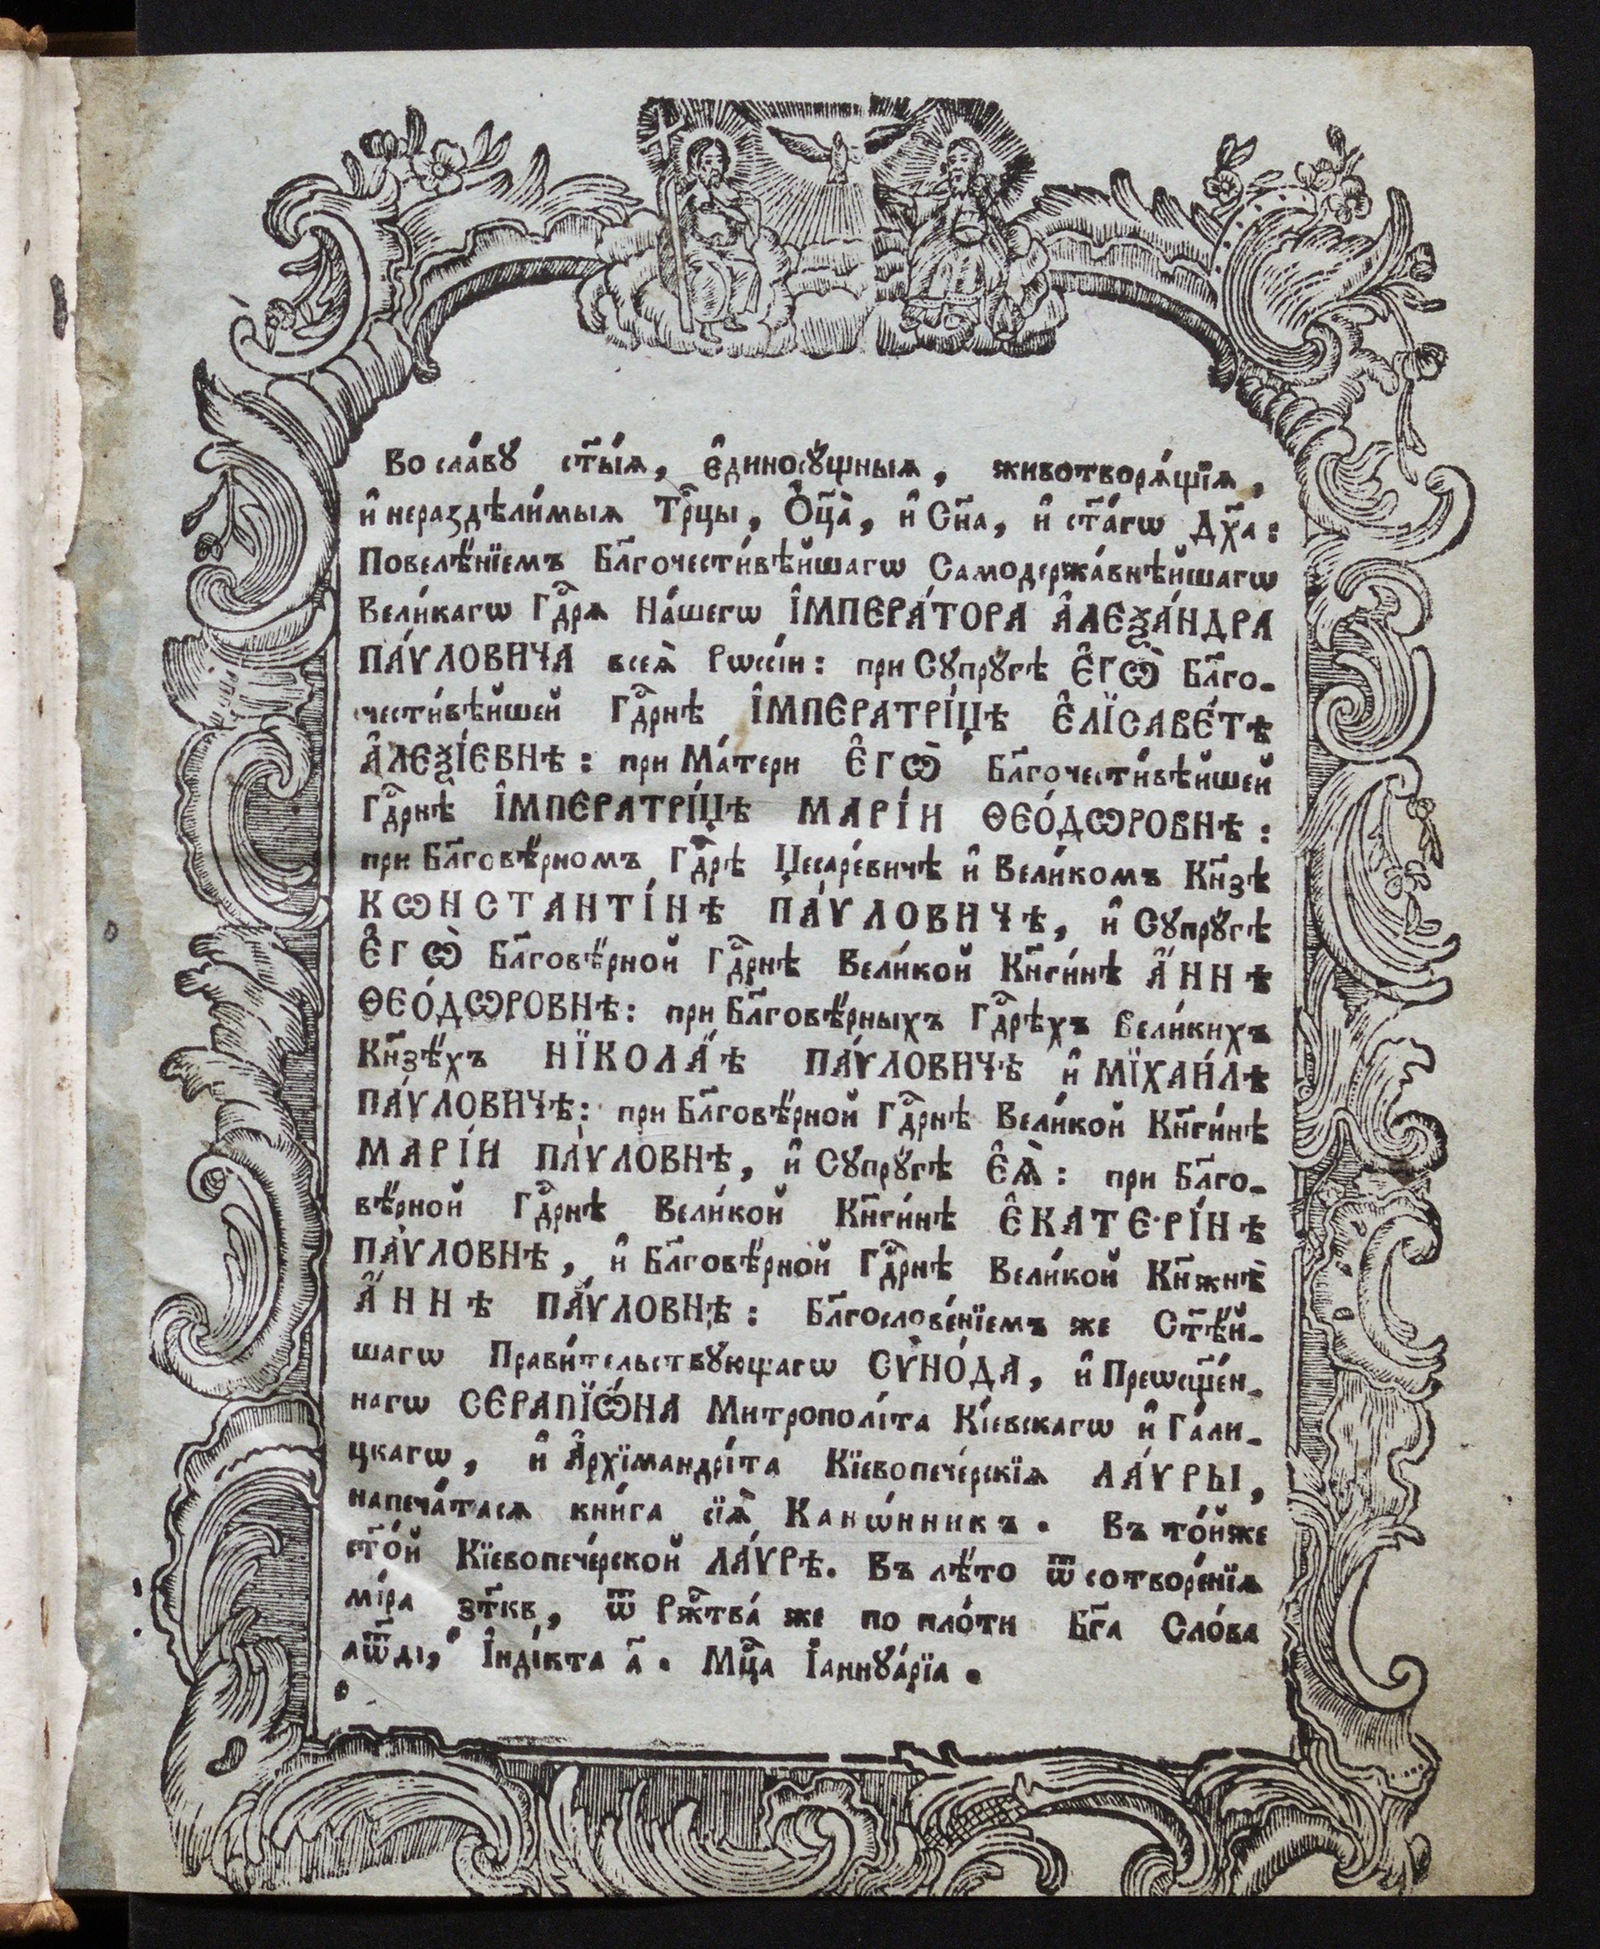 Во сла́вꙋ ст҃ы́ѧ, є҆диносꙋ́щныѧ, животворѧ́щїѧ,
и҆ нераздѣли́мыѧ Трⷪ҇цы, Ѻ҆ц҃а̀, и҆ Сн҃а, и҆ ст҃а́гѡ Дх҃а:
Повелѣ́нїемъ Бл҃гочести́вѣйшагѡ Самодержа́внѣйшагѡ
Вели́кагѡ Гдⷭ҇рѧ На́шегѡ І҆МПЕРА́ТОРА А҆ЛЕѮА́НДРА
ПА́ѴЛОВИЧА всеѧ̀ Рѡссі́и: при Сꙋпрꙋ́гѣ Є҆ГѠ̀ Бл҃го-
чести́вѣйшей Гдⷭ҇рнѣ І҆МПЕРАТРІ́ЦѢ Є҆ЛЇСАВЕ́ТѢ
А҆ЛЕѮІ́ЕВНѢ: при Ма́тери Є҆ГѠ̀ Бл҃гочести́вѣйшей
Гдⷭ҇рнѣ І҆МПЕРАТРІ́ЦѢ МАРІ́И ѲЕО́ДѠРОВНѢ:
при Бл҃говѣ́рномъ Гдⷭ҇рѣ Цесаре́вичѣ и҆ Вели́комъ Кн҃зѣ
КѠНСТАНТІ́НѢ ПА́ѴЛОВИЧѢ, и҆ Сꙋпрꙋ́гѣ
Є҆ГѠ̀ Бл҃говѣ́рной Гдⷭ҇рнѣ Вели́кой Кн҃ги́нѣ А҆́ННѢ
ѲЕО́ДѠРОВНѢ: при Бл҃говѣ́рныхъ Гдⷭ҇рѣхъ Вели́кихъ
Кн҃зѣ́хъ НЇКОЛА́Ѣ ПА́ѴЛОВИЧѢ и҆ МЇХАИ́ЛѢ
ПА́ѴЛОВИЧѢ: при Бл҃говѣ́рной Гдⷭ҇рнѣ Вели́кой Кн҃ги́нѣ
МАРІ́И ПА́ѴЛОВНѢ, и҆ Сꙋпрꙋ́гѣ Є҆Ѧ̀: при Бл҃го-
вѣ́рной Гдⷭ҇рнѣ Вели́кой Кн҃ги́нѣ Є҆КАТЕ·РІ́НѢ
ПА́ѴЛОВНѢ, и҆ Бл҃говѣ́рной Гдⷭ҇рнѣ Вели́кой Кн҃жнѣ̀
А҆́ННѢ ПА́ѴЛОВНѢ: Бл҃гослове́нїемъ же Ст҃ѣ́й-
шагѡ Прави́тельствꙋющагѡ СѴНО́ДА, и҆ Преѡсщ҃е́н-
нагѡ СЕРАПЇѠ́НА Митрополі́та Кі́евскагѡ и҆ Га́ли-
цкагѡ, и҆ А҆рхїмандрі́та Кїевопече́рскїѧ ЛА́ѴРЫ,
напеча́тасѧ кни́га сїѧ̀ Канѡ́нникъ. Въ то́йже
ст҃о́й Кїевопече́рской ЛА́ѴРѢ. Въ лѣ́то ѿ сотворе́нїѧ
мі́ра зт҃кв, ѿ Ржⷭ҇тва́ же по пло́ти Бг҃а Сло́ва
аѿ҃ді, І҆нді́кта а҃. Мцⷭ҇а І҆аннꙋа́рїа.